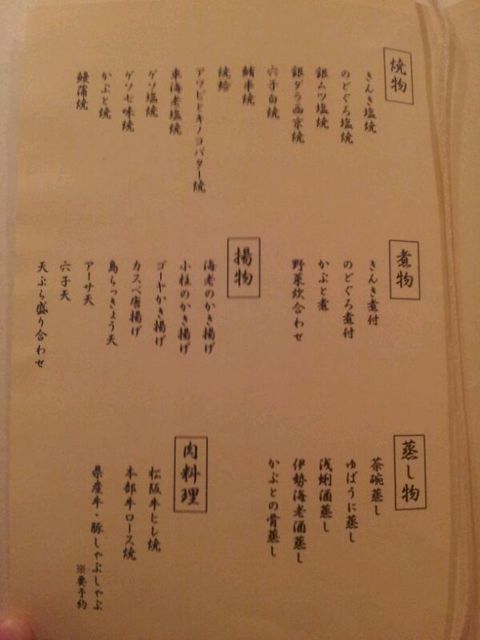 焼物
きんき塩焼
のどぐろ塩焼
銀ムツ塩焼
銀ダラ西京焼
穴子白焼
鮪串焼
焼蛤
アワビとキノコバター焼
車海老塩焼
ゲソ塩焼
ゲソ七味焼
かぶと焼
鰻蒲焼
煮物
きんき煮付
のどぐろ煮付
かぶと煮
野菜炊合わせ
揚物
海老のかき揚げ
小柱のかき揚げ
ゴーヤかき揚げ
カスベ唐揚げ
島らっきょう天
アーサ天
穴子天
天ぷら盛り合わせ
蒸し物
茶碗蒸し
ゆばうに蒸し
浅蜊酒蒸し
伊勢海老酒蒸し
かぶとの骨蒸し
肉料理
松阪牛ヒレ焼
本部牛ロース焼
県産牛・豚しゃぶしゃぶ
※要予約